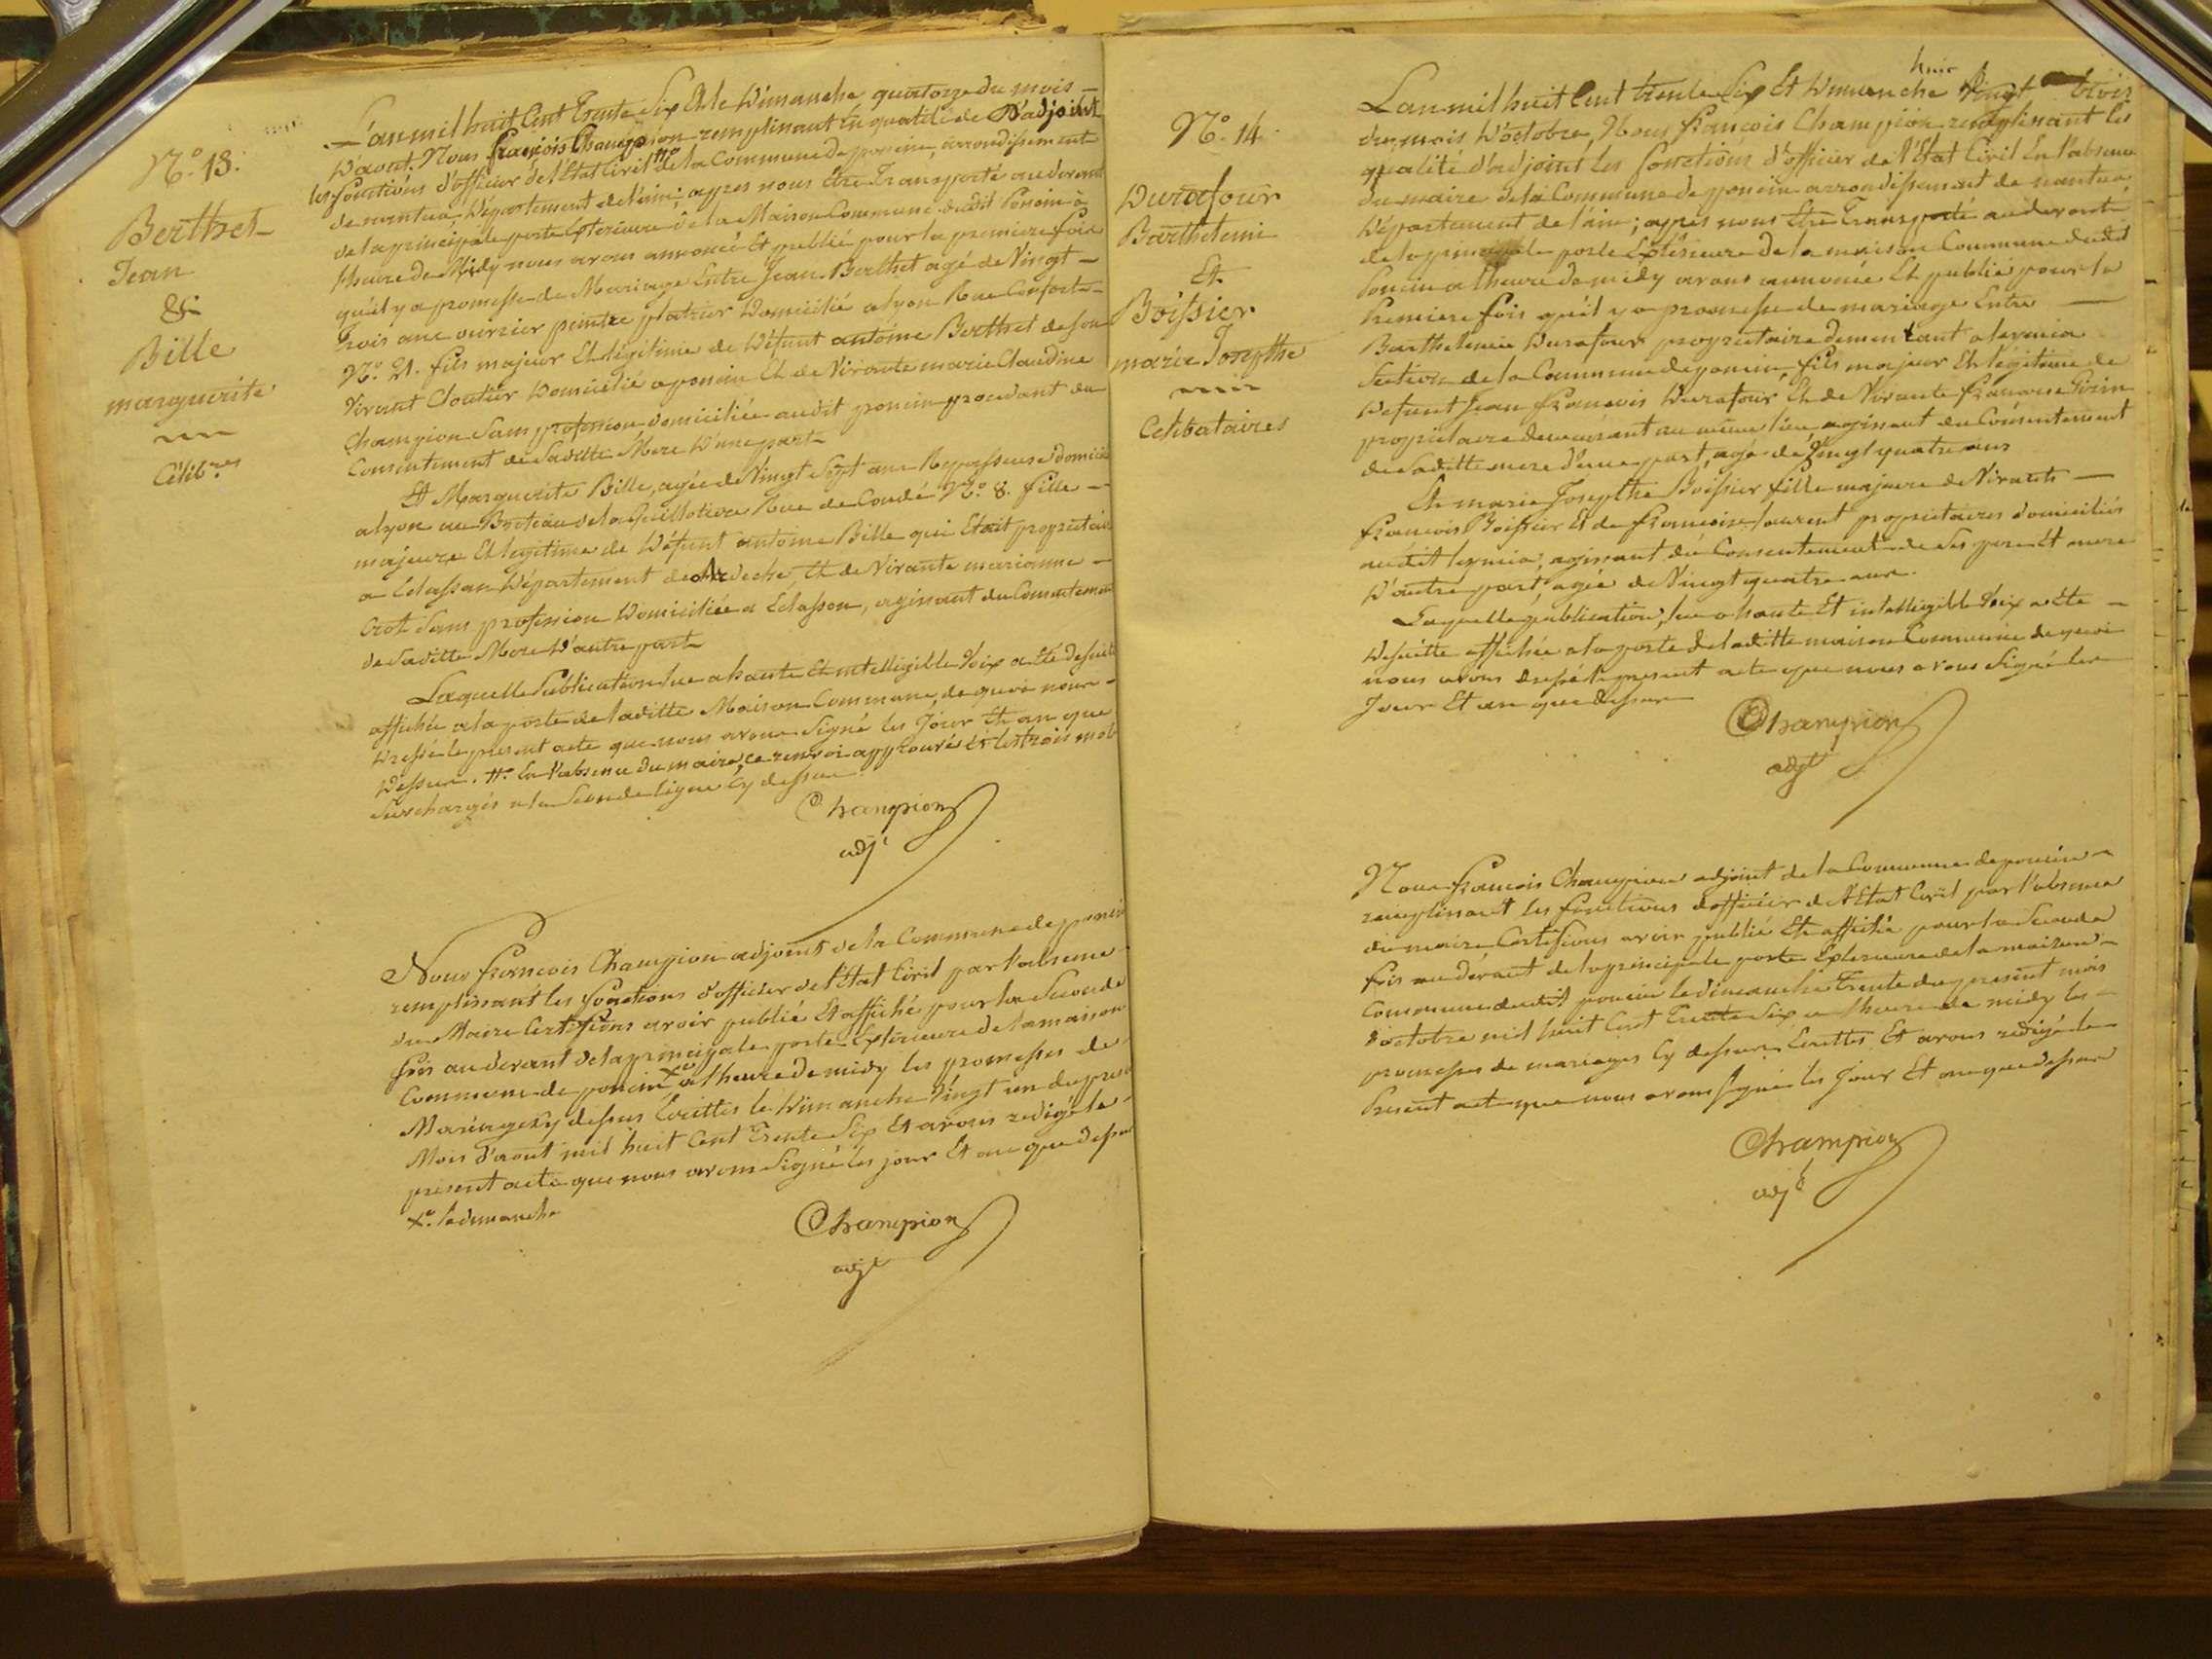 N.º 13.
Berthet
Jean
&
Bille
marguerite
Célib.res
L'an mil huit Cent Trente Six Et le Dimanche quatorze du mois
D'aout. Nous françois Champion remplissant en qualité de D'adjoint
les fonctions d'officier de l'Etat Civil de la Commune de poncin, arrondissement
de nantua, Département de l'ain; apres nous être Transporté au devant
de la principale porte Exterieure de la Maison Commune dudit Poncin à
l'heure de Midy nous avons annoncé Et publié pour la premiere fois
qu'il y a promesse de Mariage Entre Jean Berthet agé de Vingt
Trois ans ouvrier peintre platrier Domicilié a lyon Rue Confort
N.º 21. fils majeur Et légitime de Défunt antoine Berthet de son
Vivant Cloutier Domicilié a poncin Et de Vivante marie Claudine
Champion Sans profession domiciliée audit poncin procedant du
Consentement de Saditte Mere D'une part
Et Marguerite Bille, agée de Vingt Sept ans Repasseuse Domicili
a lyon au de la Guillotiere Rue de Condé N.º 8. fille
majeure Et legitime de Défunt antoine Bille qui Etait propriétaire
a Eclassan Département de Ardeche, Et de Vivante marianne
Crot Sans profession Domiciliée a Eclassan, agissant du Consentement
de Saditte Mere D'autre part
Laquelle Publication lue a haute Et intelligible Voix a Eté de suite
affichée a la porte de laditte Maison Commune, de quoi nous
Dressé le present acte que nous avons Signé les Jour Et an que
Dessus. En l'absence du maire, ce renvoi approuvé Et les trois mots
Surchargés a la Seconde ligne Cy dessus.
Champion
adj.t
Nous françois Champion adjoint de la Commune de poncin
remplissant les fonctions d'officier de l'Etat Civil par l'absence
du Maire Certifions avoir publié Et affiché pour la Seconde
fois au devant de la principale porte Exterieure de la maison
Commune de poncin X.º a l'heure de midy les promesses de
Mariage Cy dessus Ecrittes le Dimanche Vingt un du present
Mois d'aout mil huit Cent Trente Six Et avons redigé le
present acte que nous avons Signé les jour Et an que dessus
X.º le dimanche
Champion
adj.t
N.º 14.
Durafour
Barthelemi
Et
Boissier
marie Josephe
Celibataires
L'an mil huit Cent trente Six Et Dimanche Vingt trois
du mois D'octobre, Nous françois Champion remplissant les
qualité d'adjoint les fonctions d'officier de l'Etat Civil En l'absence
du maire de la Commune de poncin arrondissement de nantua
Département de l'ain; apres nous être Transporté au devant
de la principale porte Extérieure de la maison Commune dudit
Poncin a l'heure de midy avons annoncé Et publié pour la
Premiere fois qu'il y a promesse de mariage Entre
Barthelemi Durafour propriétaire demeurant a leymia
Section de la Commune de poncin, fils majeur Et légitime de
Defunt Jean françois Durafour Et de Vivante françoise
propriétaire demeurant au même lieu agissant du Consentement
de Saditte mere d'une part, agé de Vingt quatre ans
Et marie Josephe Boissier fille majeure de Vivants
françois Boissier Et de françoise laurent propriétaires domiciliés
audit leymia, agissant du Consentement de Ses pere Et mere
D'autre part, agée de Vingt quatre ans.
Laquelle publication, lue a haute Et intelligible Voix a Eté
De suitte affichée a la porte de laditte maison Commune de quoi
nous avons dressé le present acte que nous avons Signé les
Jour Et an que dessus
Champion
adj.t
Nous françois Champion adjoint de la Commune de poncin
remplissant les fonctions d'officier de l'Etat Civil par l'absence
du maire Certifions avoir publié Et affiché pour la Seconde
fois au devant de la principale porte Exterieure de la maison
Commune dudit poncin le dimanche Trente du present mois
d'octobre mil huit Cent Trente Six a l'heure de midy les
promesses de mariages Cy dessus Ecrittes, Et avons redigé le
Present acte que nous avons Signé les Jour Et an que dessus
Champion
adj.t